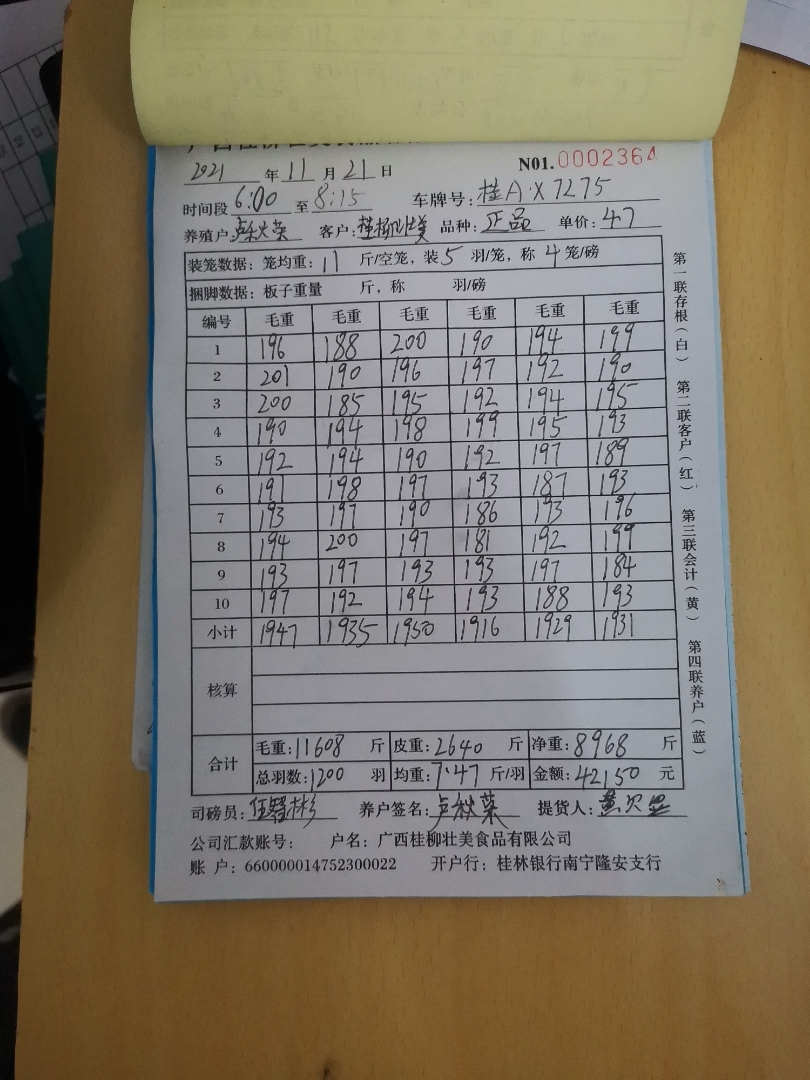 2021 年 11 月 21 日 N01.0002364
时间段 6:00 至 8:15 车牌号: 桂A·X7275
养殖户 卢秋菜 客户: 桂柳壮美 品种: 正品 单价: 4.7
装笼数据: 笼均重: 11 斤/空笼, 装 5 羽/笼, 称 4 笼/磅
捆脚数据: 板子重量 斤, 称 羽/磅
编号 毛重 毛重 毛重 毛重 毛重 毛重
1 196 188 200 190 194 199
2 201 190 196 197 192 190
3 200 185 195 192 194 195
4 190 194 198 199 195 193
5 192 194 190 192 197 189
6 191 198 197 193 187 193
7 193 197 190 186 193 196
8 194 200 197 181 192 199
9 193 197 193 193 197 184
10 197 192 194 193 188 193
小计 1947 1935 1950 1916 1929 1931
核算
合计 毛重: 11608 斤 皮重: 2640 斤 净重: 8968 斤
总羽数: 1200 羽 均重: 7.47 斤/羽 金额: 42150 元
司磅员: 养户签名: 卢秋菜 提货人:
公司汇款账号: 户名: 广西桂柳壮美食品有限公司
账 户: 660000014752300022 开户行: 桂林银行南宁隆安支行
第一联存根(白) 第二联客户(红) 第三联会计(黄) 第四联养户(蓝)